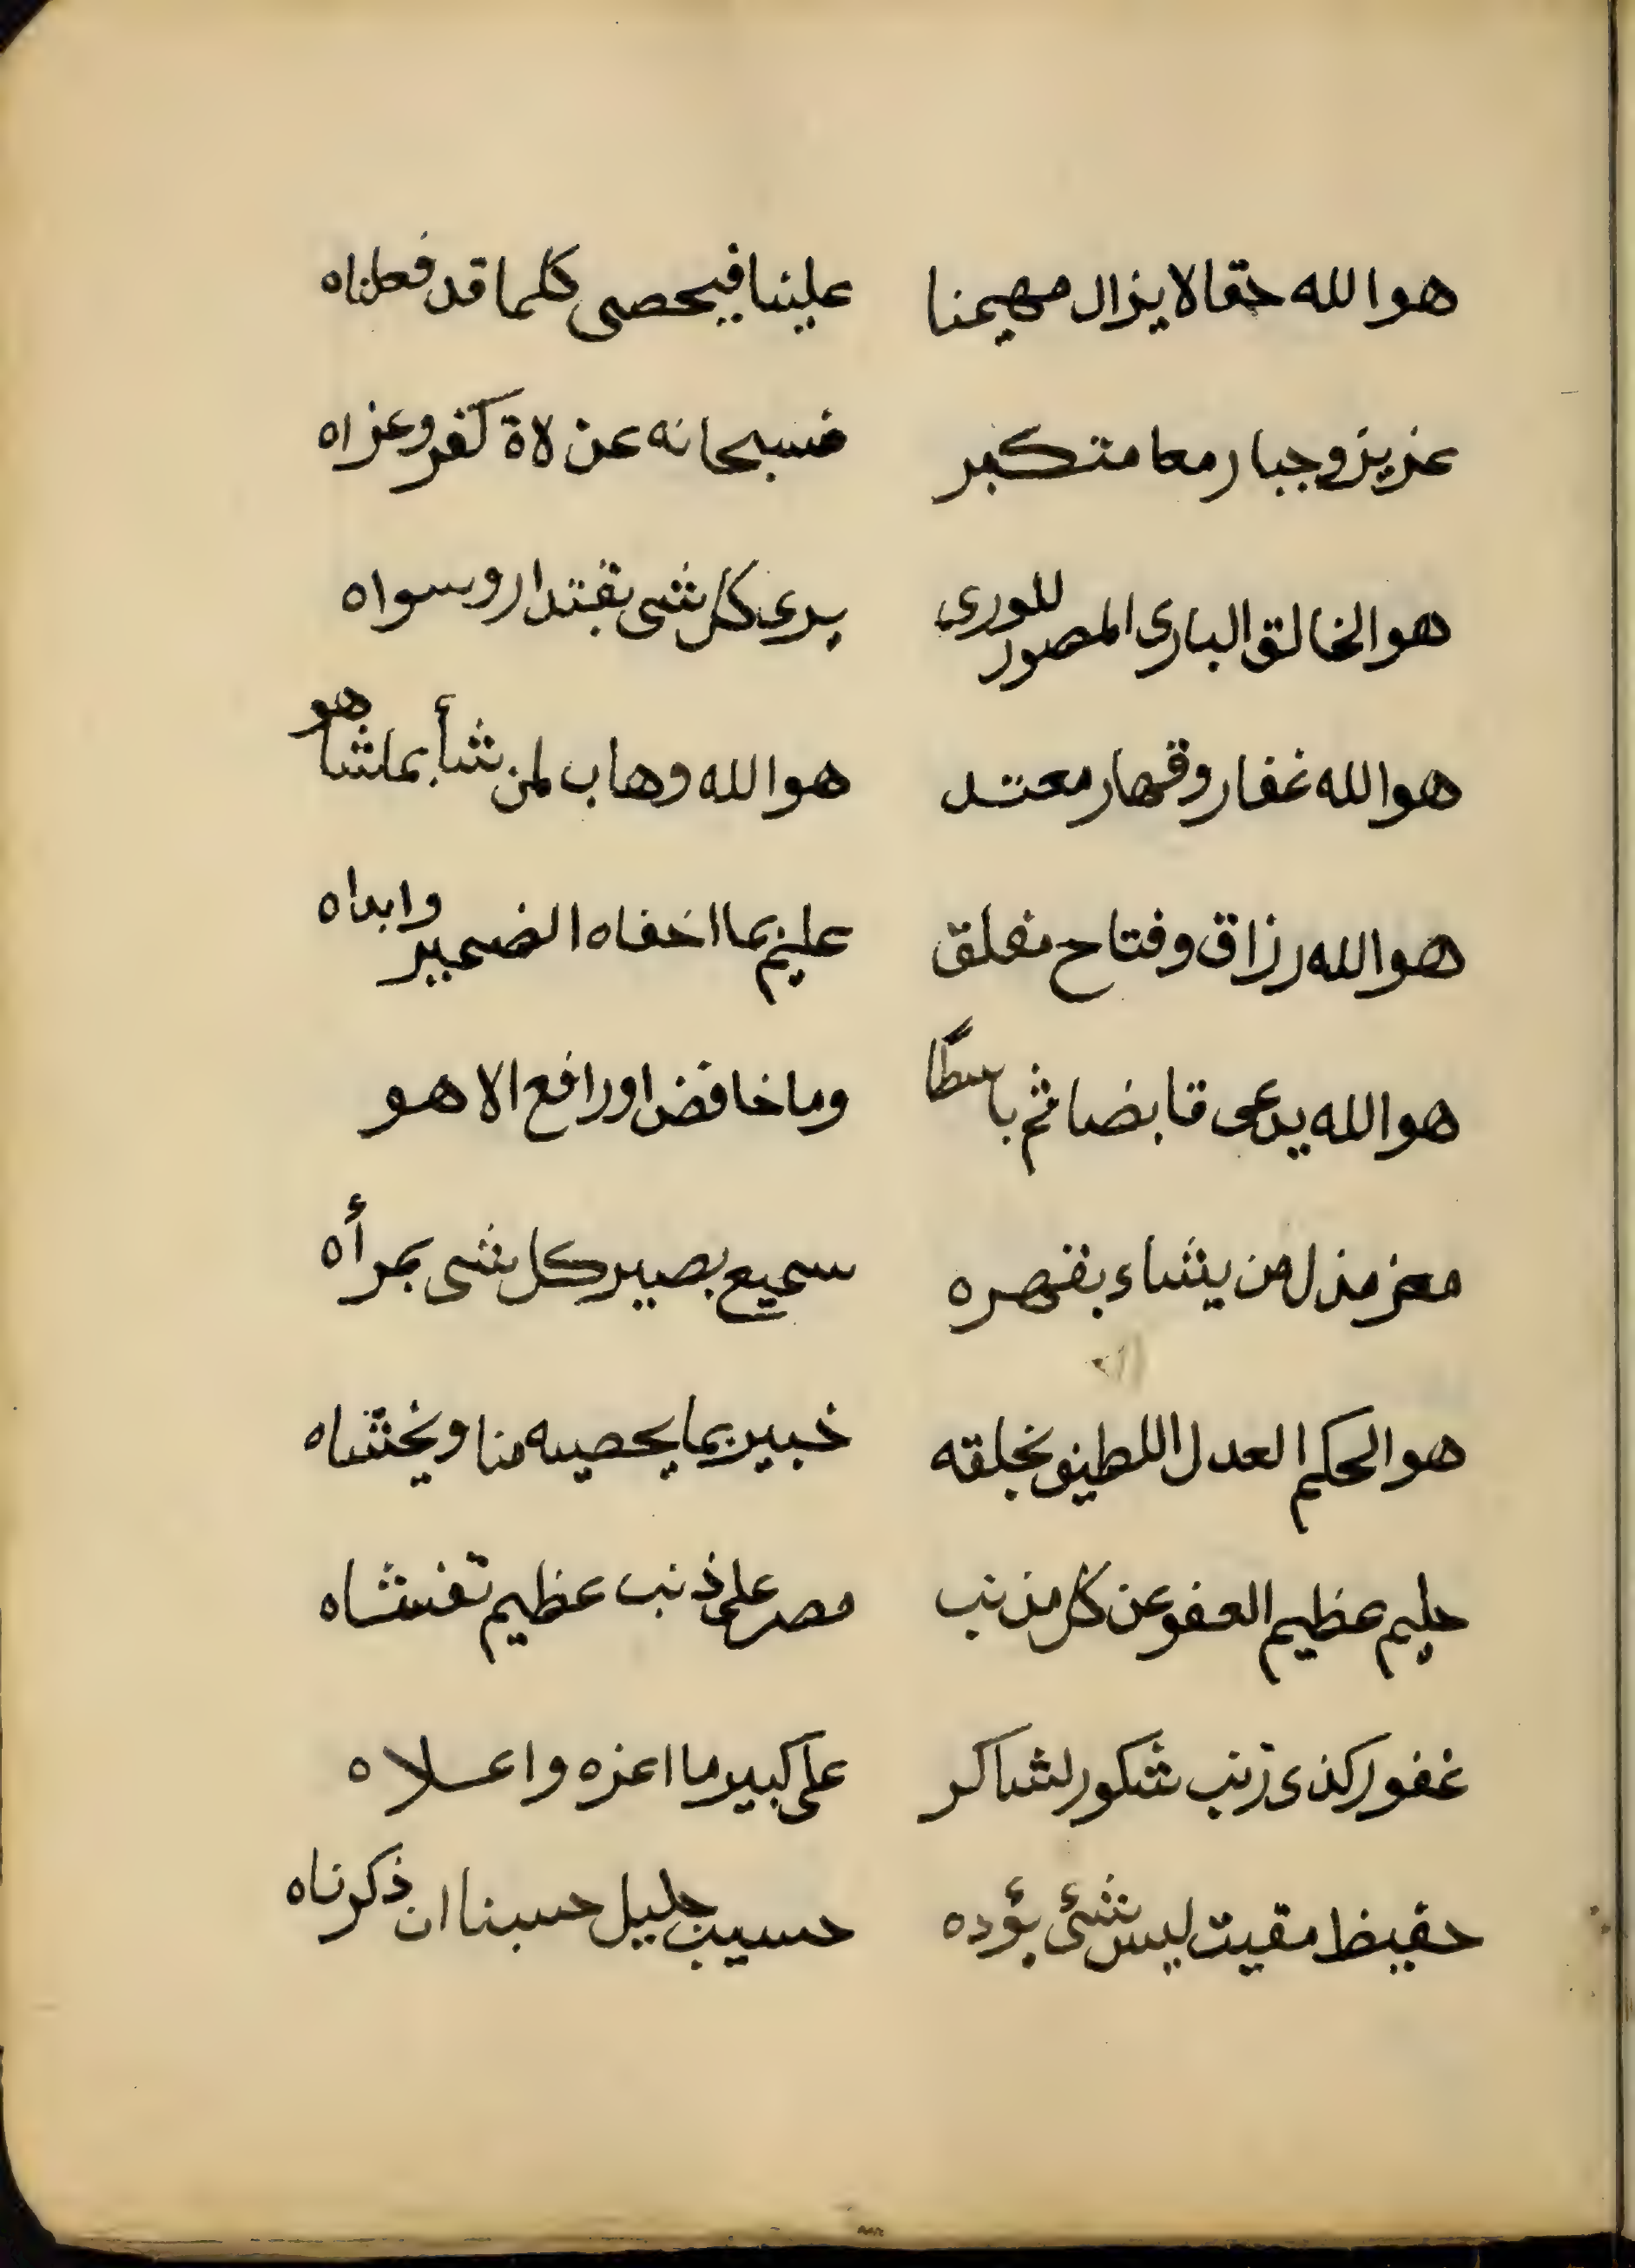 هو الله حقا لا يزال مهيمنا علينا فيحصى كلما قد فعلناه
عزيز وجبار معا متكبر فسبحانه عن لاة كفر وعزاه
هو الخالق البارى المصور للورى برى كل شى بقتدار وسواه
هو الله غفار وقهار معتد هو الله وهاب لمن شأ بما شا هو
هو الله رزاق وفتاح مغلق عليم بما اخفاه الضمير وابداه
هو الله يدعى قابضا ثم باسطا وما خافض او رافع الا هو
معز مذل من يشاء بقهره سميع بصير كل شى بمرأه
هو الحكم العدل اللطيف بخلقه خبير بما يحصيه منا ويخشاه
حليم عظيم العفو عن كل مذنب مصر على ذنب عظيم تغشاه
غفور كذى زنب شكور لشاكر على كبير ما اعزه واعلاه
حفيظ مقيت ليس شئ يؤده حسيب جليل حسبنا ان ذكرناه